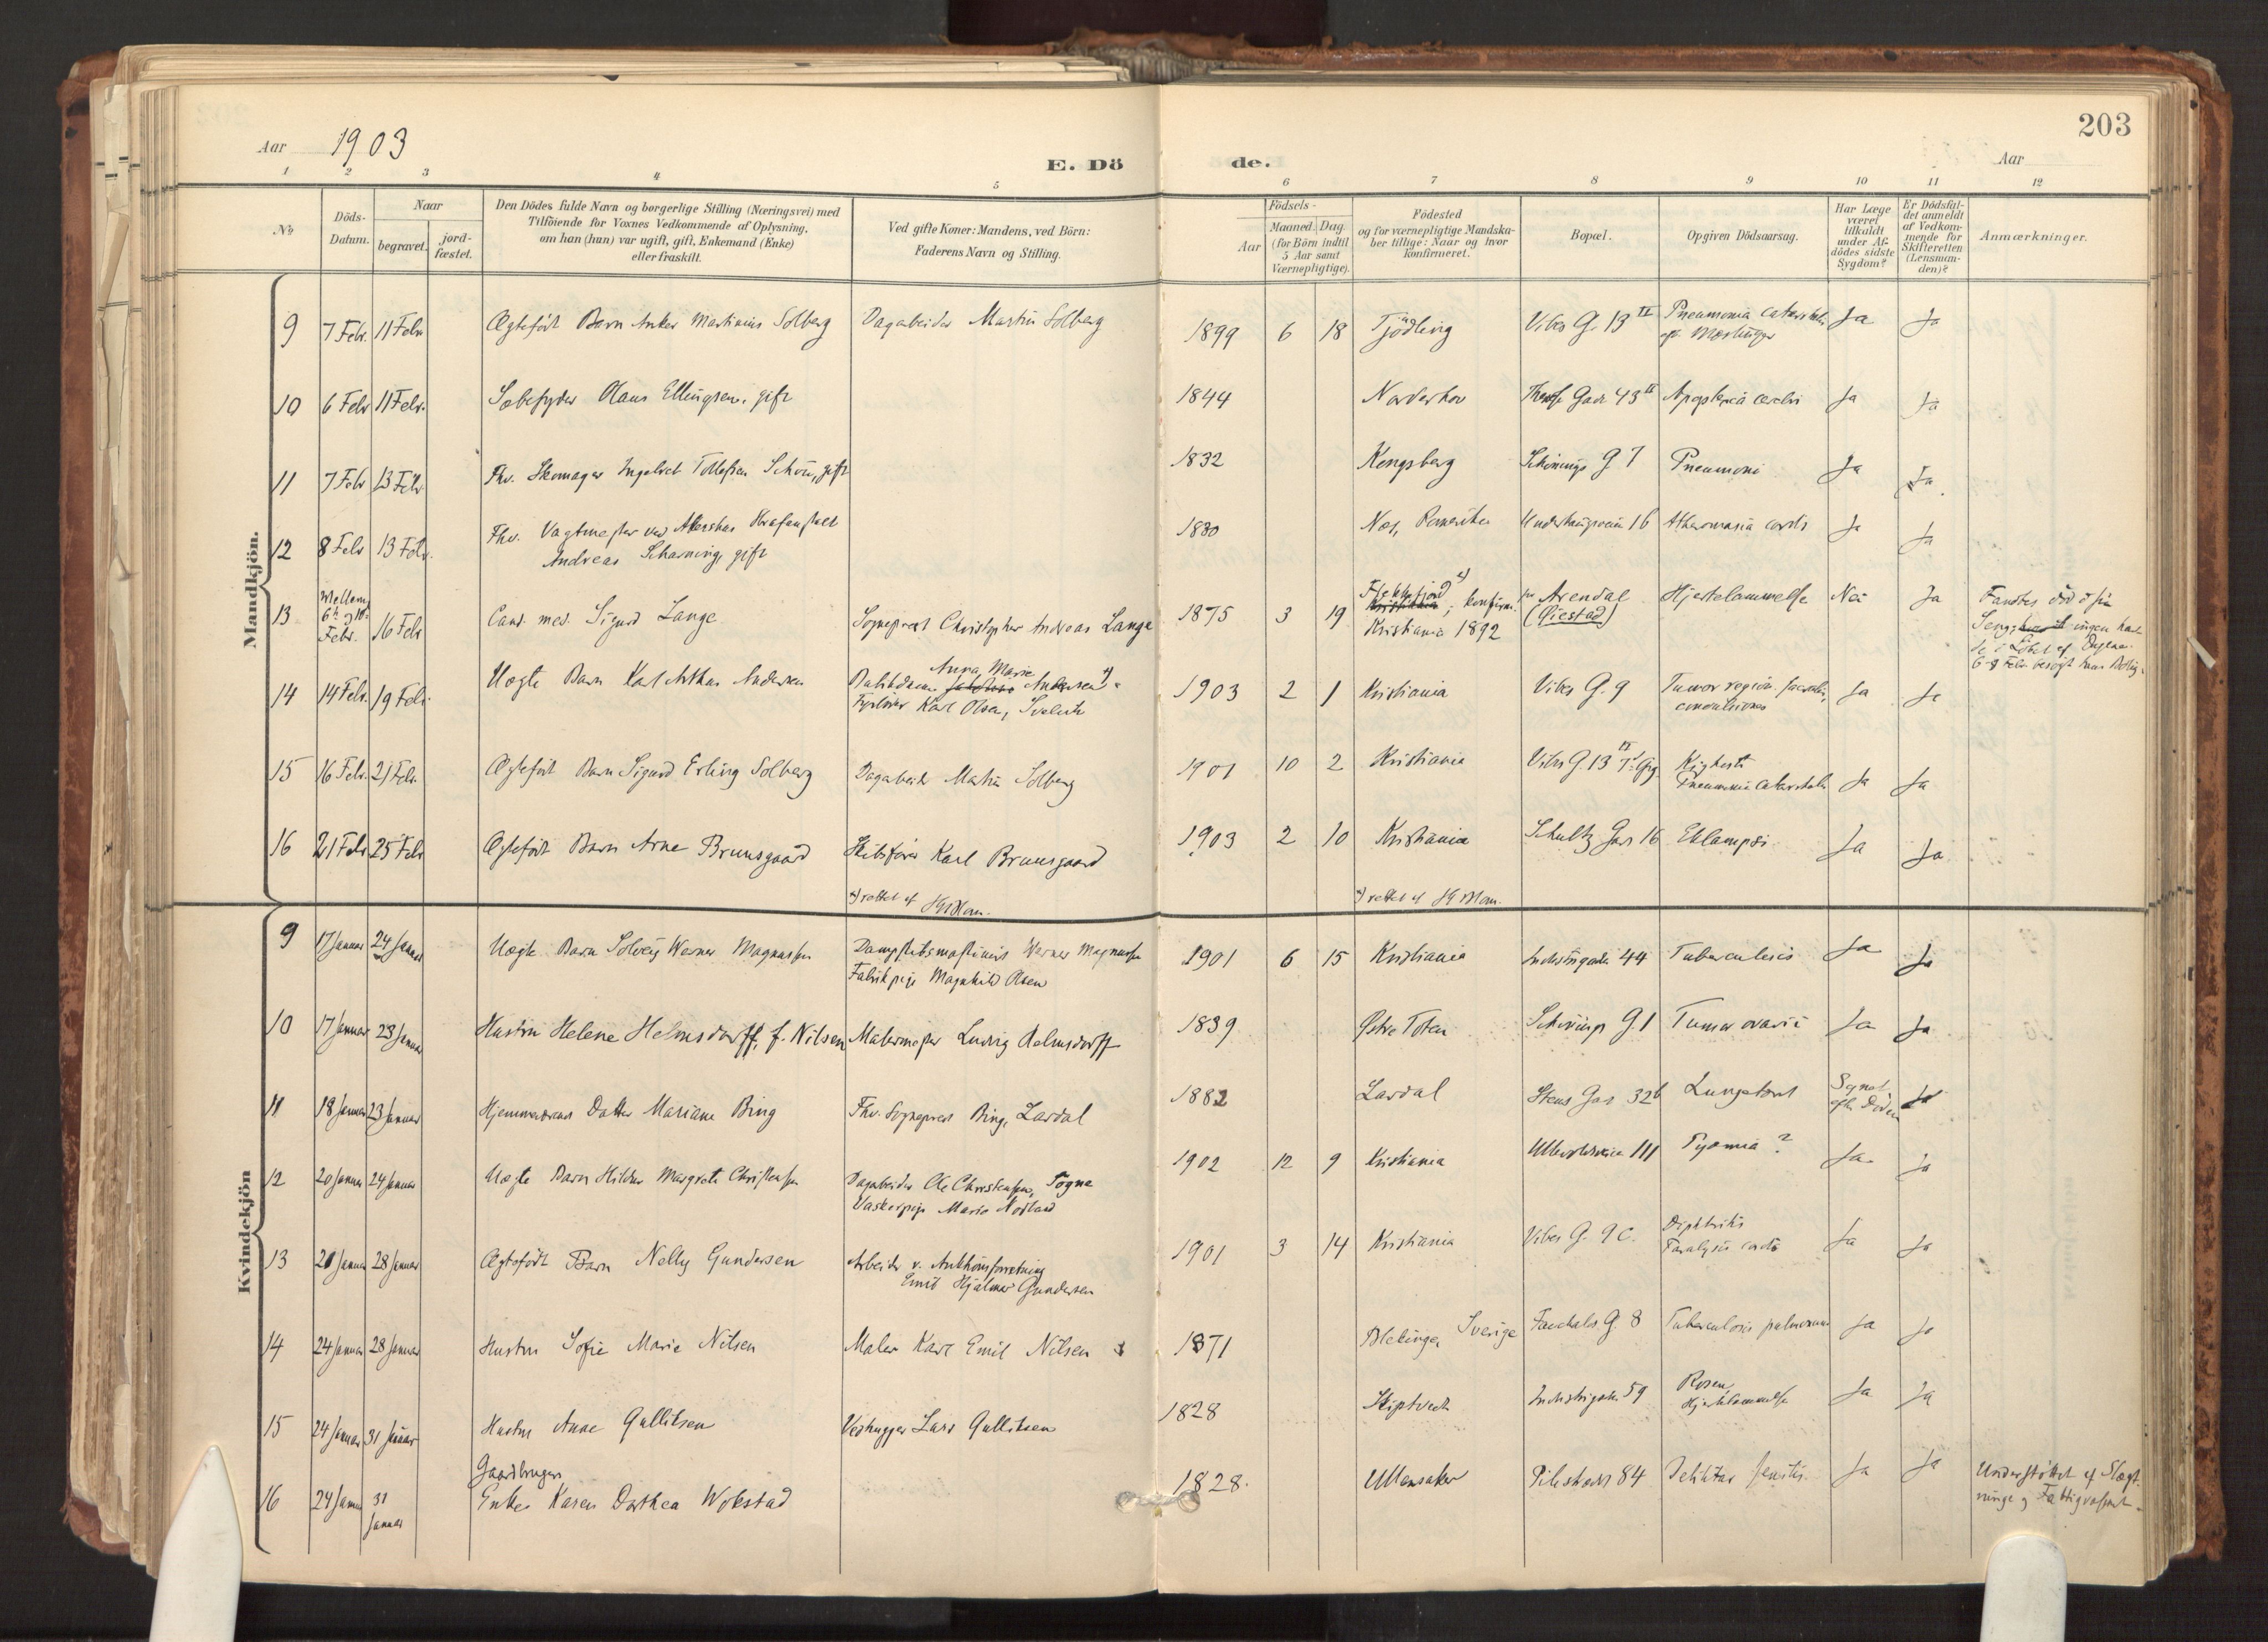 203
Aar 1903
E. Döde.
Aar
1 2 3 4 5 6 7 8 9 10 11 12
No
Döds-Datum.
Naar
begravet.
jord-fæstet.
Den Dödes fulde Navn og borgerlige Stilling (Næringsvei) med
Tilföiende for Voxnes Vedkommende af Oplysning,
om han (hun) var ugift, gift, Enkemand (Enke)
eller fraskilt.
Ved gifte Koner: Mandens, ved Börn:
Faderens Navn og Stilling.
Födsels-
Aar
Maaned. Dag.
(for Börn indtil
5 Aar samt
Værnepligtige).
Födested
og for værnepligtige Mandska-
ber tillige: Naar og hvor
konfirmeret.
Bopæl.
Opgiven Dödsaarsag.
Har Læge
været
tilkaldt
under Af-
dödes sidste
Sygdom?
Er Dödsfal-
det anmeldt
af Vedkom-
mende for
Skifteretten
(Lensman-
den)?
Anmærkninger.
Mandkjön.
9 7 Febr. 11 Febr Ægtefödt Barn Anker Martinius Solberg Dagarbeider Martin Solberg 1899 6 18 Tjödling Vibes G. 13 II Pneumonia catarrhalis Ja Ja
ef. Mæslinger
10 6 Febr 11 Febr. Sæbesyder Olaus Ellingsen, gift 1844 Norderhov Therese Gade 43 II Apoplexia cerebri Ja Ja
11 7 Febr 13 Febr Fhv. Skomager Ingebret Tollefsen Schou, gift 1832 Kongsberg Schönings G 7 Pneumoni Ja Ja.
12 8 Febr 13 Febr. Fhv. Vagtmester ved Akershus Strafanstalt 1830 Næs, Romerike 16 Atheromasia cordis Ja Ja
Andreas Scharning, gift
13 Mellem 6te og 10de Febr. 16 Febr Cand. med. Sigurd Lange Sogneprest Christopher Andreas Lange 1875 3 19 Flekkefjord x) Kristiania; konfirm. Kristiania 1892 Arendal (Öiestad) Hjertelammelse Nei Ja Fandtes död i sin
Seng; ingen hav-
de i Löbet af Dagene
6-9 Febr besögt hans Bolig.
14 14 Febr. 19 Febr Uægte Barn Karl Arthur Andersen Anna Marie Andersen x) 1903 2 1 Kristiania Vibes G. 9 Tumor region. sacralis, Ja Ja
Fyrböder Karl Olsen, Svelvik convulsiones
15 16 Febr. 21 Febr. Ægtefödt Barn Sigurd Erling Solberg Dagarbeider Martin Solberg 1901 10 2 Kristiania Vibes G. 13 II Kighoste Ja Ja
Pneumonia catarrhalis
16 21 Febr 25 Febr Ægtefödt Barn Arne Bruusgaard Skibsförer Karl Bruusgaard 1903 2 10 Kristiania Schultz Gade 16 Eklampsi Ja Ja
x) rettet af
x) rettet af
Kvindekjön
9 17 Januar 24 Januar Uægte Barn Solveig Werner Magnussen Dampskibsmaskinist Werner Magnussen 1901 6 15 Kristiania Industrigaden 44 Tuberculosis Ja Ja
Fabrikpige Magnhild Olsen
10 17 Januar 23 Januar Hustru Helene Helmsdorff, f. Nilsen Malermester Ludvig Helmsdorff 1839 Östre Toten Schönings G. 1 Tumor ovarii Ja Ja
11 18 Januar 23 Januar Hjemmeværende Datter Mariane Bing Fhv. Sogneprest Bing, Lardal 1882 Lardal Stens Gade 32b Lungebrand Synet efter Döden Ja
12 20 Januar 24 Januar Uægte Barn Hildur Margrete Christensen Dagarbeider Ole Christensen, Sogne 1902 12 9 Kristiania Ullevoldsveien 111 Pyæmia? Ja Ja
Vaskerpige Marie
13 21 Januar 28 Januar Ægtefödt Barn Nelly Gundersen Arbeider v. Auktionsforretning 1901 3 14 Kristiania Vibes G. 9 C. Diphteritis Ja Ja
Emil Hjalmar Gundersen Paralysis cordis
14 24 Januar 28 Januar Hustru Sofie Marie Nilsen Maler Karl Emil Nilsen 1871 Blekinge, Sverige Fauchalds G. 8 Tuberculosis pulmonum Ja Ja
15 24 Januar 31 Januar Hustru Anne Gullitsen Vedhugger Lars Gullitsen 1828 Skiptvedt Industrigade 59 Rosen, Ja Ja
Hjertelammelse
16 24 Januar 31 Januar Gaardbruger
Enke Karen Dorthea Wokstad 1828. Ullensaker Pilestrædet 84 Debilitas senilis Ja Ja Understöttet af Slægt-
ninge og Fattigvæsenet.